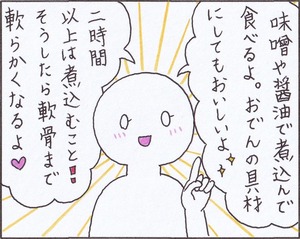 味噌や醤油で煮込んで
食べるよ。おでんの具材
にしてもおいしいよ。
二時間
以上は煮込むこと！
そうしたら軟骨まで
軟らかくなるよ♥